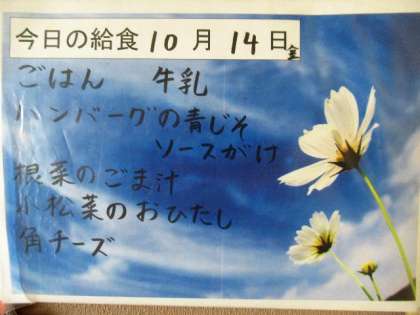 今日の給食 10月 14日 金
ごはん 牛乳
ハンバーグの青じそ
ソースがけ
根菜のごま汁
小松菜のおひたし
角チーズ